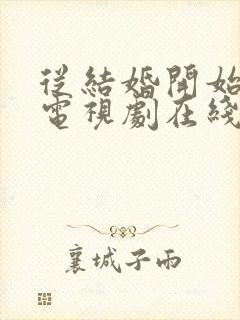 從結婚開始
電視劇在綫
襄城子雨